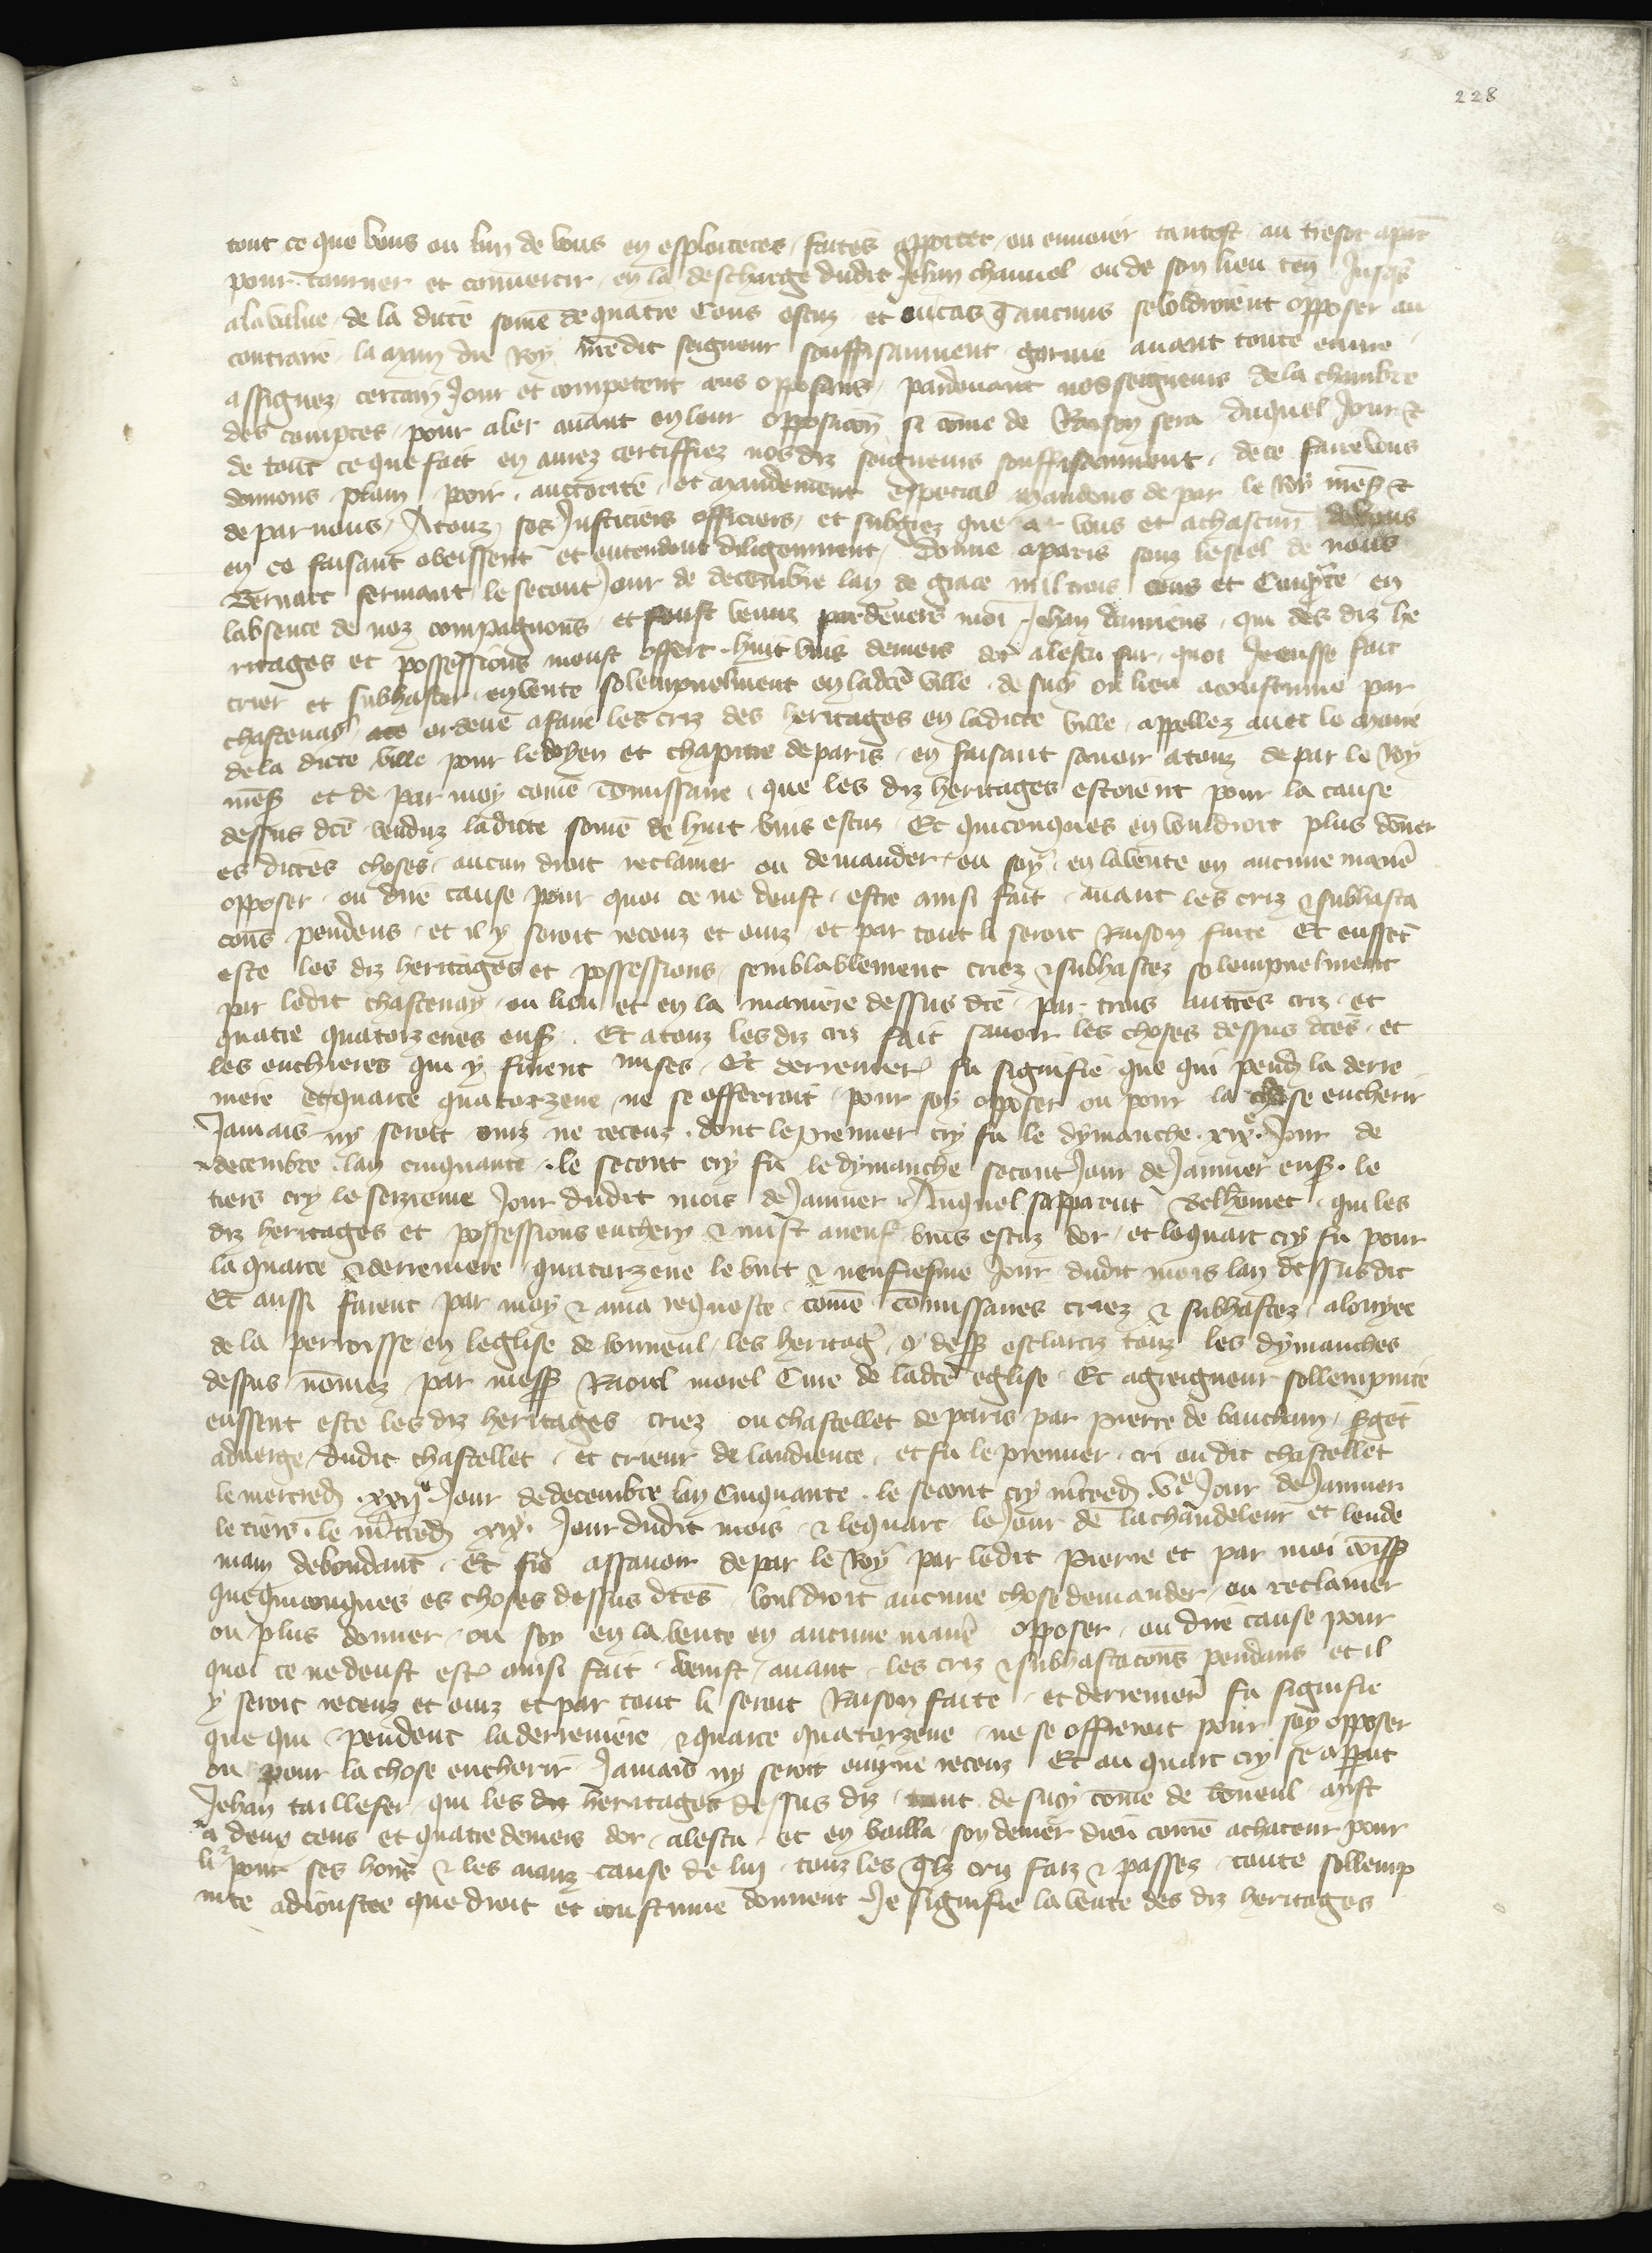 228
tout ce que vous ou lun de vous en esploiterez faites apporter ou envoier tantost au tresor a par̄
pour tourner et convertir en la descharge dudit Jehan chauvel ou de son lieu ten̄ Jusqs
a la value de la dicte som̄e de quatre Cens escuz et ou cas q̄ aucuns se voldroient opposer au
contraire la main du Roy n̄re dit seigneur souffisanment garnie avant toute euvre
assignez certain Jour et competent aus opposans pardevant nosseigneurs de la chambre
des comptes pour aler avant en leur opposicōn si com̄e de Raison sera duquel Jour &
de tout ce que fait en avrez certiffiez nos diz seigneurs souffisanment de ce faire vous
donnons plain pooir auctorite et mandement especial mandons de par le Roy n̄res̄ &
de par nous A touz ses Justiciers officiers et subgiez que a vous et a chascun de vous
en ce faisant obeissent et entendent diligenment Donne a paris souz le seel de nous
Bernart fermant le secont Jour de decembre lan de grace mil trois cens et Cinq̄nte en
labsence de noz compagnons et feust venuz pardevers moi Jehan damiens qui des diz he
ritages et possessions meust offert huit vins deniers dor a lescu sur quoi Je eusse fait
crier et subhaster en vente solempnelment en ladc̄e ville de sucy ou lieu acoustume par
chastenay ace ordene a faire les criz des heritages en ladicte ville appellez avec le maire
de la dicte ville pour le doyen et chapitre de paris en faisant savoir a touz de par le Roy
n̄res̄ et de par moy com̄e com̄issaire que les diz heritages estoient pour la cause
dessus dc̄e venduz ladicte som̄e de huit vins escuz Et quiconques en vouldroit plus don̄er
es dictes choses aucun droit reclamer ou demander ou soy en la vente en aucune manie͂
opposer ou dire cause pour quoi ce ne deust estre ainsi fait avant les criz & subhasta
cōns pendens et il y seroit receuz et ouiz et par tout li seroit Raison faite Et eussēt
este les diz heritages et possessions semblablement criez & subhastez solempnelment
par ledit chastenay ou lieu et en la maniere dessus dc̄e par trois autres criz et
quatre quatorzenes ens̄ Et a touz les diz criz fait savoir les choses dessus dc̄es et
les enchieres qui y furent mises Et derrenier͂ fu signifie que qui pend̄ la derre
niere et quarte quatorzene ne se offerroit pour soy opposer ou pour la chose encherir
Jamais ny seroit ouiz ne receuz dont le premier cry fu le dymanche xixe Jour de
decembre lan cinquante le secont cry fu le dymanche secont Jour de Janvier ens̄ le
tiers cry le seizieme Jour dudit mois de Janvier Auquel sapparut Delhom̄et qui les
diz heritages et possessions enchery & mist a neuf vins escuz dor et le quart cry fu pour
la quarte & derreniere quatorzene le vint & neufiesme Jour dudit mois lan dessus dit
Et aussi furent par moy & a ma requeste com̄e com̄issaires criez & subhastez a loiyee
de la perroisse en leglise de bonneul les heritaḡ cy dess̄ esclarciz touz les dymanches
dessus nōmez par mess̄ Raoul morel Cure de ladc̄e eglise Et a greigneur sollempnite
eussent este les diz heritages criez ou chastellet de paris par pierre de vauchain s̄gēt
a dverge dudit chastellet et crieur de laudience et fu le premier cri ou dit chastellet
le mercred̄ xxije Jour de decembre lan Cinquante le secont cry m̄cred̄ ve Jour de Janvier
le tiers le m̄cred̄ xixe Jour dudit mois & le quart le Jour de la chandeleur et lende
main Et fis assavoir de par le Roy par ledit pierre et par moi com̄iss̄
que quiconques es choses dessus dc̄es vouldroit aucune chose demander ou reclamer
ou plus donner ou soy en la vente en aucune manie͂ opposer ou dire cause pour
quoi ce ne deust est͂ ainsi fait venist avant les criz & subhastacōns pendans et il
y seroit receuz et ouiz et par tout li seroit Raison faite et derrenier͂ fu signifie
que qui pendent la derreniere & quarte quatorzene ne se offerroit pour soy opposer
ou pour la chose encherir Jamais ny seroit ouiz ne receuz Et au quart cry se apput
Jehan taillefer qui les dit heritages dessus diz tant de sucy com̄e de bon̄eul mist
a deux cens et quatre deniers dor a lescu et en bailla son denier dieu com̄e achateur pour
li pour ses hoirs & les aianz cause de lui touz les q̄lz criz faiz & passez toute sollemp
nite adioustee que droit et coustume donnent Je signifie la vente des diz heritages